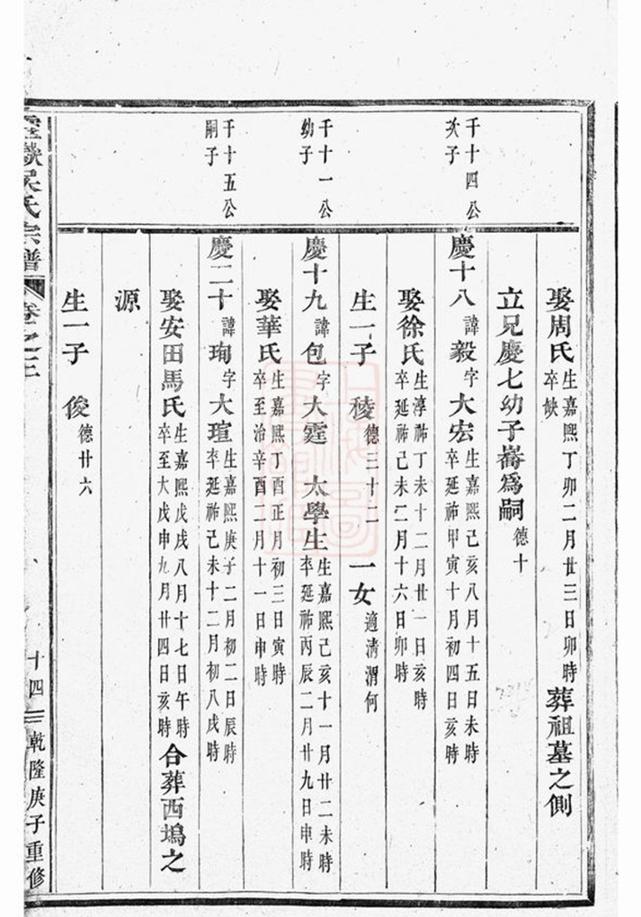 娶周氏生嘉熙丁卯二月廿三日卯時卒缺葬祖墓之側
立兄慶七幼子嵛爲嗣德十
千十四公次子
慶十八諱毅字大宏生嘉熙己亥八月十五日未時卒延祐甲寅十月初四日亥時
娶徐氏生淳祐丁未十二月廿一日亥時卒延祐己未二月十六日卯時
生一子稜德三十二一女適清渭何
千十一公幼子
慶十九諱包字大霆太學生生嘉熙己亥十一月廿二未時卒延祐丙辰二月廿九日申時
娶華氏生嘉熙丁酉正月初三日寅時卒至治辛酉二月十一日申時
千十五公嗣子
慶二十諱珣字大瑄生嘉熙庚子二月初二日辰時卒延祐己未十二月初八戌時
娶安田馬氏生嘉熙戊戌八月十七日午時卒至大戊申九月廿四日亥時合葬西塢之
源
生一子俊德廿六
吳氏宗譜
卷之
十四
乾隆庚子重修